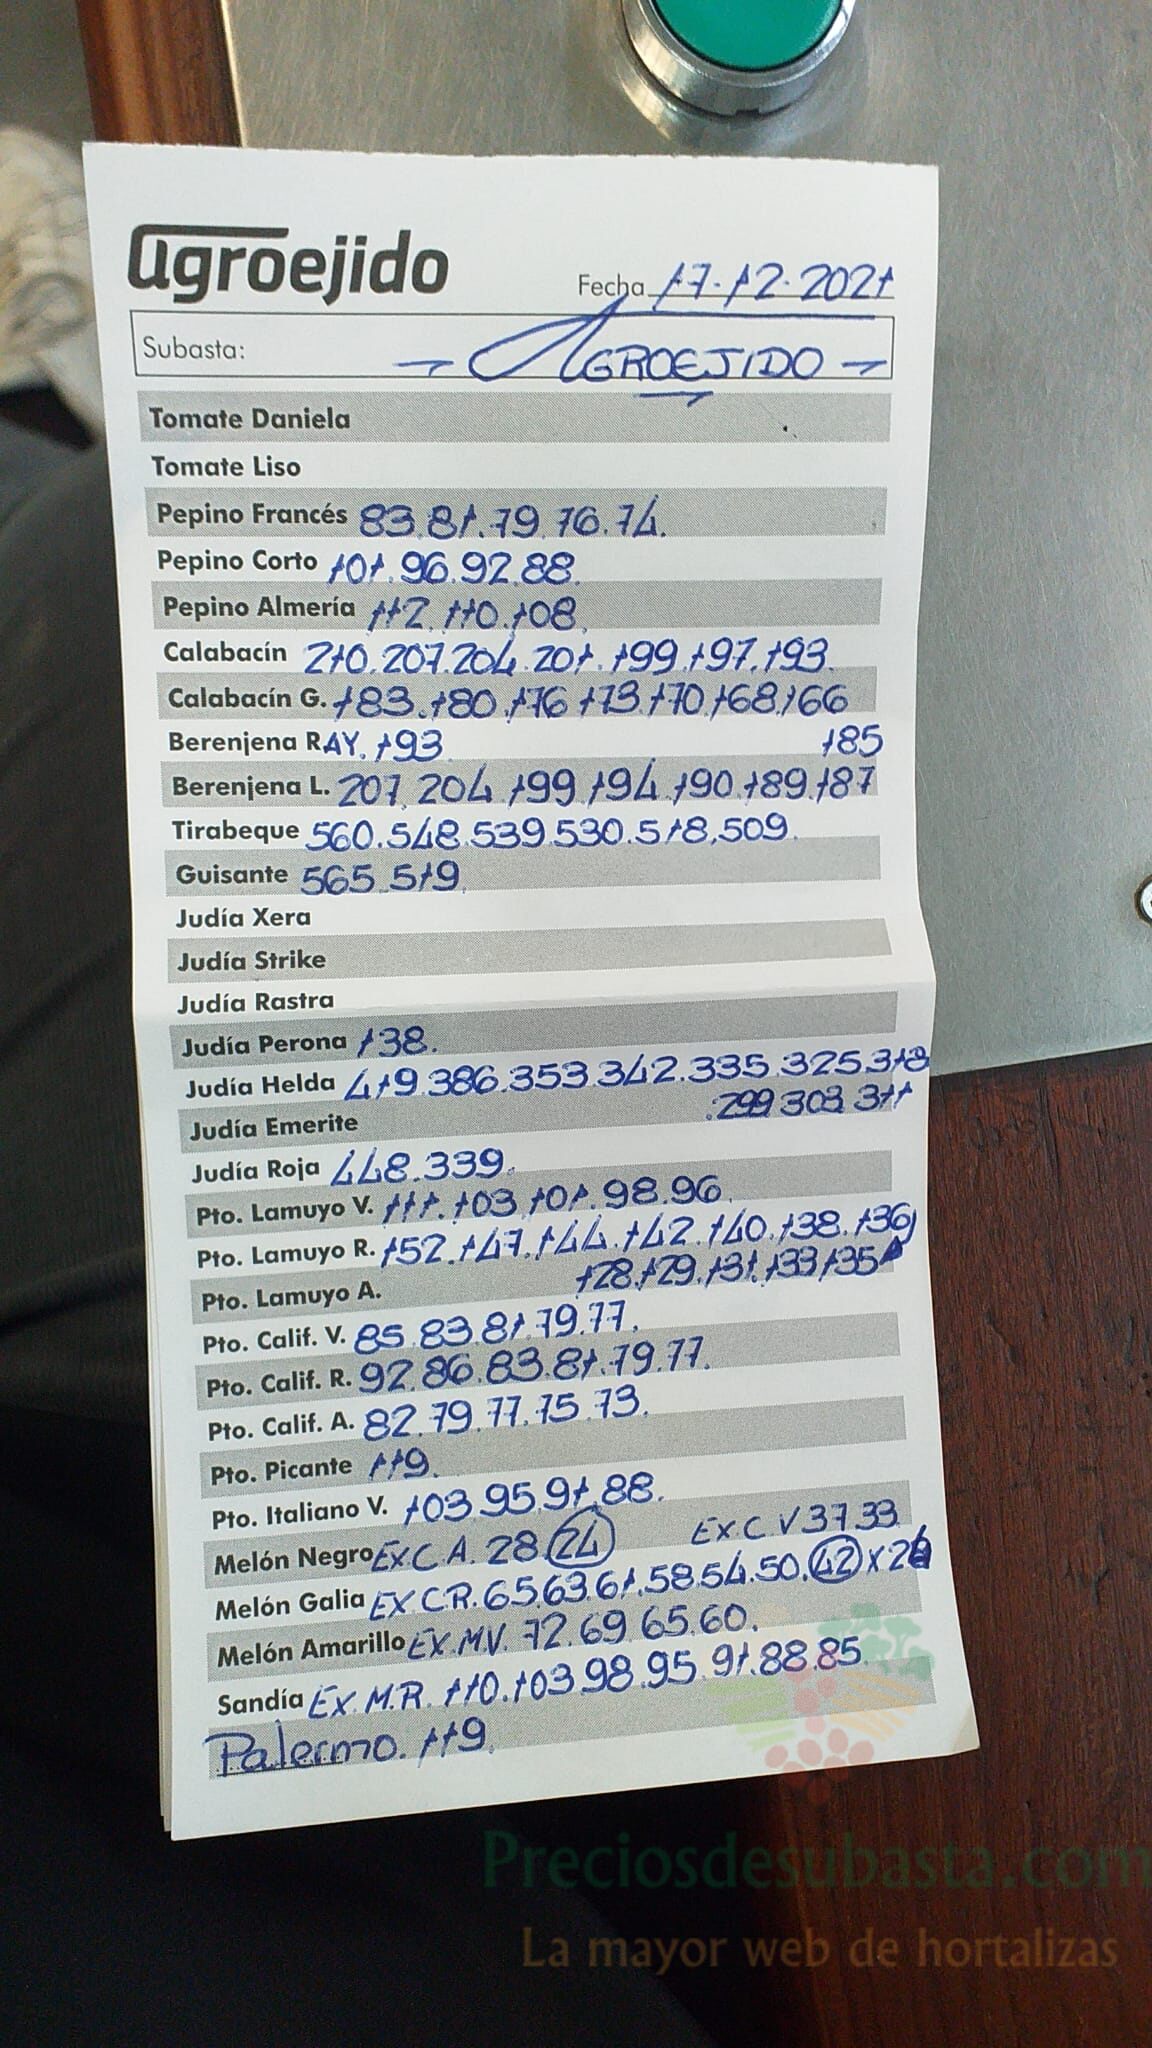 agroejido
Fecha 17-12-2021
Subasta: AGROEJIDO
Tomate Daniela
Tomate Liso
Pepino Francés 83.81.79.76.74.
Pepino Corto 101.96.92.88.
Pepino Almería 112.110.108.
Calabacín 210.207.204.201.199.197.193.
Calabacín G. 183.180.176.173.170.168.166
Berenjena RAY. 193 185
Berenjena L. 207.204.199.194.190.189.187
Tirabeque 560.548.539.530.518.509.
Guisante 565.519.
Judía Xera
Judía Strike
Judía Rastra
Judía Perona 138.
Judía Helda 419.386.353.342.335.325.318
Judía Emerite .299.303.311
Judía Roja 448.339.
Pto. Lamuyo V. 111.103.101.98.96.
Pto. Lamuyo R. 152.147.144.142.140.138.136
Pto. Lamuyo A. 128.129.131.133.135
Pto. Calif. V. 85.83.81.79.77.
Pto. Calif. R. 92.86.83.81.79.77.
Pto. Calif. A. 82.79.77.75.73.
Pto. Picante 119.
Pto. Italiano V. 103.95.91.88.
Melón Negro EX C A. 28.24 EX.C.V 37.33
Melón Galia EX C.R. 65.63.61.58.54.50.42 X
Melón Amarillo EX.M.V. 72.69.65.60.
Sandía EX.M.R. 110.103.98.95.91.88.85.
Palermo. 119.
Preciosdesubasta.com
La mayor web de hortalizas